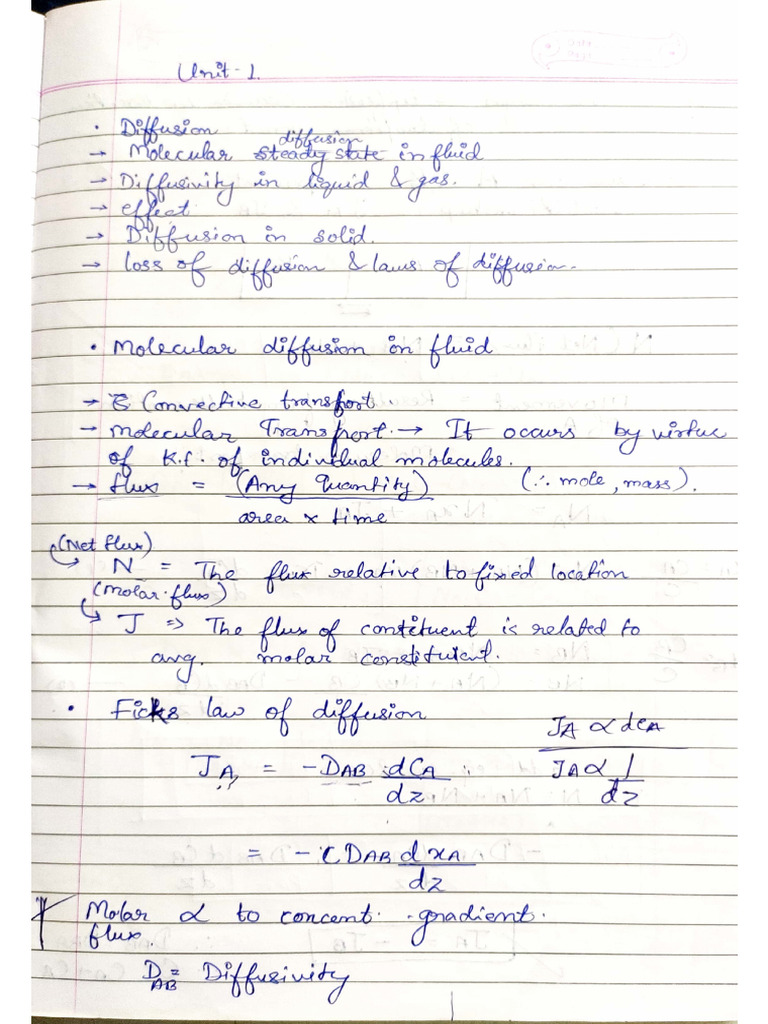 Unit - 1.
• Diffusion
→ Molecular steady state diffusion in fluid
→ Diffusivity in liquid & gas.
→ effect
→ Diffusion in solid.
→ loss of diffusion & laws of diffusion.
• Molecular diffusion in fluid
→ Convective transport.
→ Molecular Transport. → It occurs by virtue
of K.f. of individual molecules.
→ flux = (Any Quantity) / area × time (∴ mole, mass).
(Net flux)
→ N = The flux relative to fixed location
(molar flux)
→ J => The flux of contituent is related to
avg. molar constitutent.
• Ficks law of diffusion
J_A = -D_AB dC_A / dz
J_A ∝ dC_A
J_A ∝ 1 / dz
= - C D_AB d x_A / dz
Molar flux. ∝ to concent. gradient.
D_AB = Diffusivity